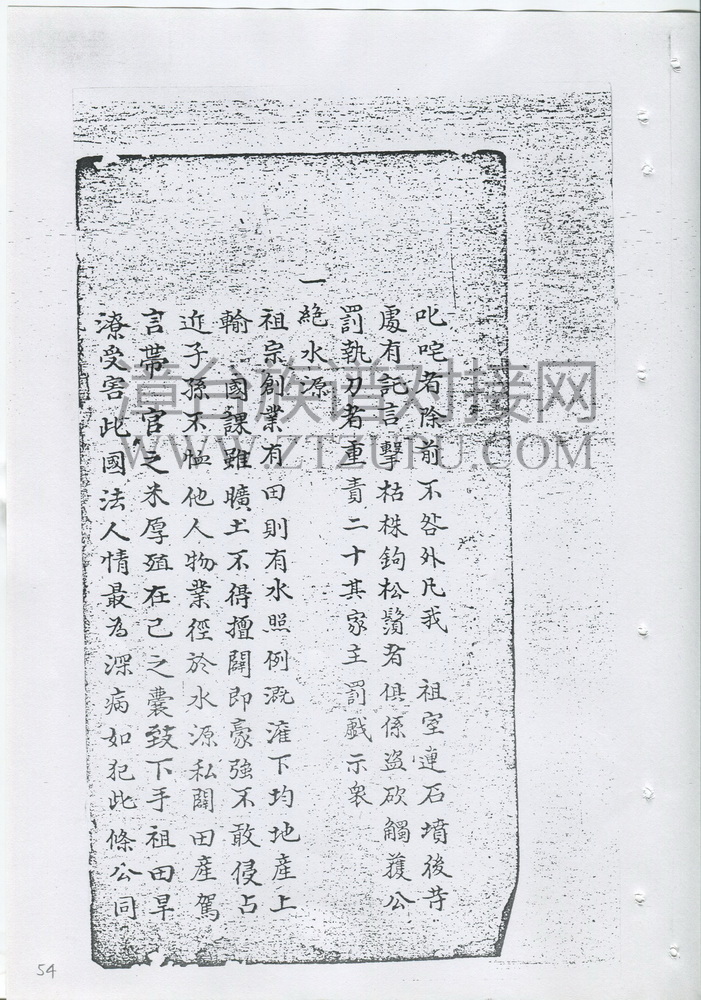 叱咤者除前不咎外凡我　祖室連石墳後苛
處有託言擊枯株鉤松鬚者俱係盜砍觸獲公
罰執刀者重責二十其家主罰戲示衆
一絕水源
祖宗創業有田則有水照例溉漼下均地產上
輸　國課雖曠土不得擅闢即豪強不敢侵占
近子孫不恤他人物業徑於水源私闢田產駕
言帶官之米厚殖在己之囊致下手　祖田旱
潦受害此國法人情最為深病如犯此條公同
漳台族谱对接网
WWW.ZTZUPU.COM
54